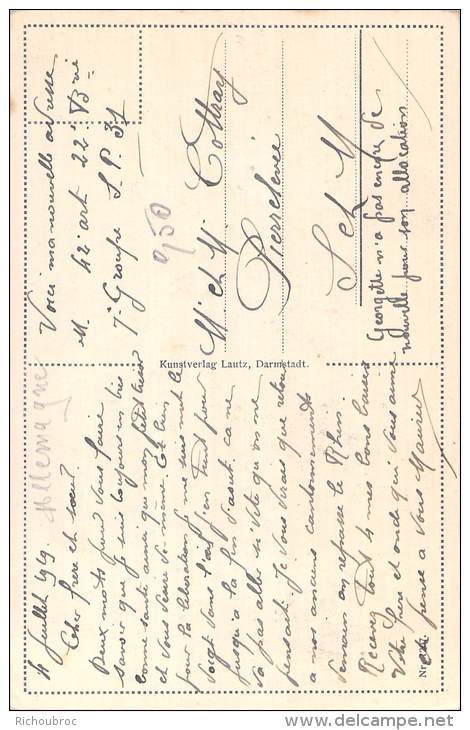 Voici ma nouvelle adresse
M. 42e art 22e Brie
7e Groupe S.P. 37
950
Mr et Mme Cottray
Pierrelevée
S et M
Georgette n'a pas encore de
nouvelle pour son allocation
Kunstverlag Lautz, Darmstadt.
Allemagne
4 Juillet 1919.
Cher frère et sœur
Deux mots pour vous faire
savoir que je suis toujours en très
bonne santé ainsi que mon petit
et vous désire de même. Et bien
pour la libération je me suis mit le
doigt dans l'œil j'en tout pour
jusqu'à la fin d'août. ça ne
va pas aller si vite qu'on ne
pensait. Je vous dirais que retour
a nos anciens cantonnements
demain on repasse le Rhin.
Recevez tout 4 mes bons baisers
Votre frère et oncle qui vous aime
et pense a vous Maurice
Nr
Richoubroc
www.delcampe.net